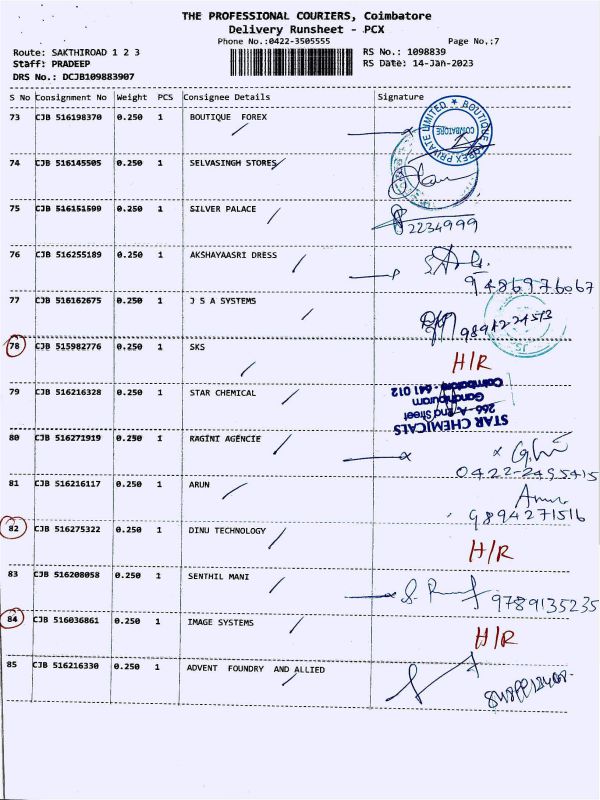 THE PROFESSIONAL COURIERS, Coimbatore
Delivery Runsheet - PCX
Phone No.:0422-3505555 Page No.;7
Route: SAKTHIROAD 1 2 3 RS No.: 1098839
Staff: PRADEEP RS Date: 14-Jan-2023
DRS No.: DCJB109883907
S No Consignment No Weight PCS Consignee Details Signature
73 CJB 516198370 0.250 1 BOUTIQUE FOREX
BOUTIQUE FOREX PRIVATE LIMITED ★
COIMBATORE
74 CJB 516145505 0.250 1 SELVASINGH STORES
75 CJB 516151599 0.250 1 SILVER PALACE
2234999
76 CJB 516255189 0.250 1 AKSHAYAASRI DRESS
9486976067
77 CJB 516162675 0.250 1 J S A SYSTEMS
78 CJB 515982776 0.250 1 SKS H/R
79 CJB 516216328 0.250 1 STAR CHEMICAL
STAR CHEMICALS
266-A, 2nd Street
Gandhipuram
Coimbatore - 641 012
80 CJB 516271919 0.250 1 RAGINI AGENCIE
0422-2495415
81 CJB 516216117 0.250 1 ARUN
9894271516
82 CJB 516275322 0.250 1 DINU TECHNOLOGY H/R
83 CJB 516208058 0.250 1 SENTHIL MANI
9789135235
84 CJB 516036861 0.250 1 IMAGE SYSTEMS H/R
85 CJB 516216330 0.250 1 ADVENT FOUNDRY AND ALLIED